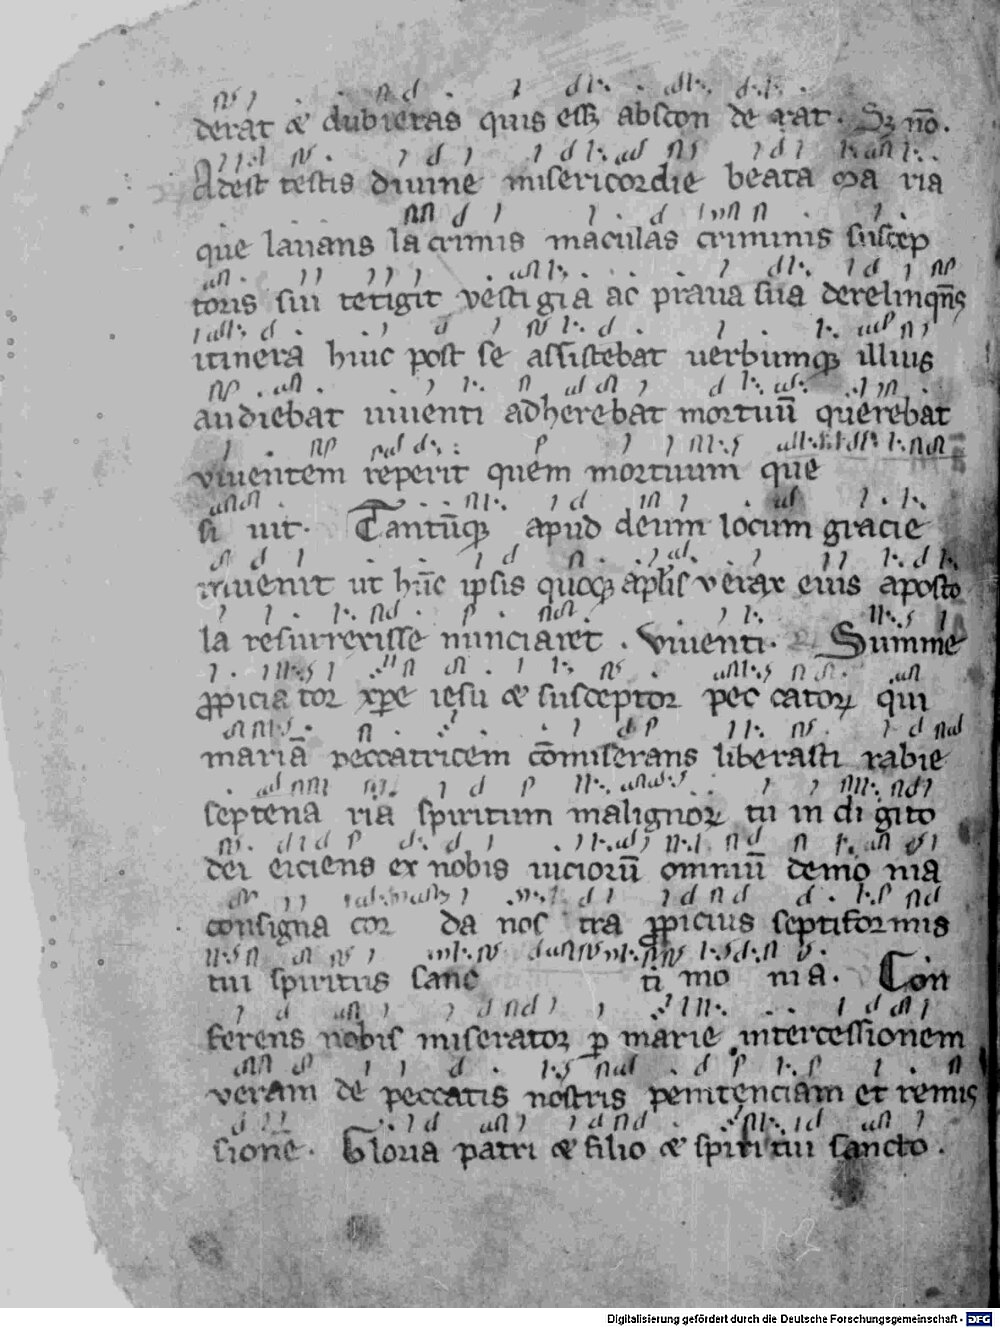 derat & dubietas quis esset abscon de rat. S; nō.
Adest testis diuine misericordie beata ma ria
que lauans lacrimis maculas criminis suscep
toris sui tetigit vestigia ac praua sua derelinqn̄s
itinera huic post se assistebat uerbumq; illius
audiebat uiuenti adherebat mortuū querebat
viuentem reperit quem mortuum que
si uit. Tantūq; apud deum locum gracie
inuenit ut hūc ipsis quoq; apl̄is verax eius aposto
la resurrexisse nunciaret. viuenti. Summe
ꝓpicia tor xp̄e iesu & susceptor pec catoꝝ qui
mariā peccatricem cōmiserans liberasti rabie
septena ria spiritum malignoꝝ tu in di gito
dei eiciens ex nobis uiciorū omniū demo nia
consigna cor da nos tra ꝓpicius septiformis
tui spiritus sanc ti mo nia. Con
ferens nobis miserator ꝑ marie intercessionem
veram de peccatis nostris penitenciam et remis
sionē. Gloria patri & filio & spiritui sancto.
Digitalisierung gefördert durch die Deutsche Forschungsgemeinschaft - DFG